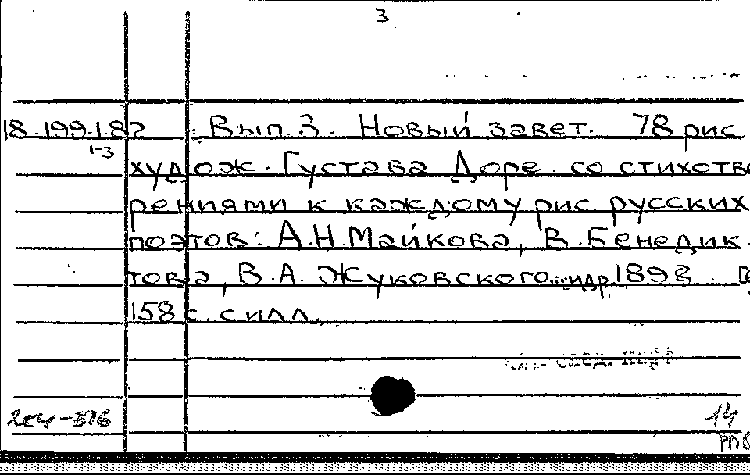 3
18.199.1.82 Вып. 3. Новый завет. 78 рис
1-3
худож. Густава Доре со стихотво
рениями к каждому рис русских
поэтов: А.Н. Майкова, В. Бенедик
това, В.А. Жуковского и др. 1898.
158 с. с илл.
14